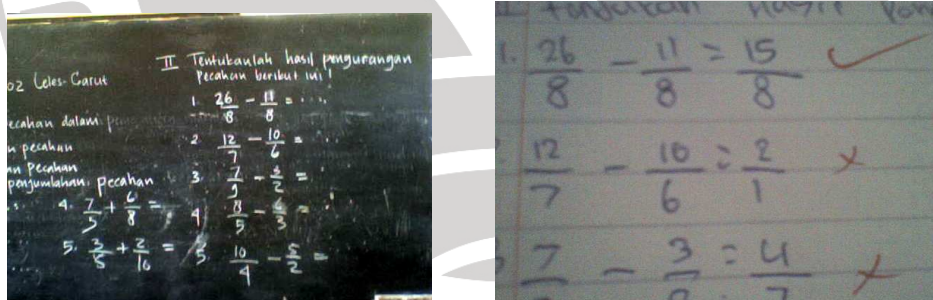 02 Leles-Garut
ecahan dalam
n pecahan
an pecahan
penjumlahan pecahan
4. 7/5 + 6/8 =
5. 3/5 + 2/10 =
II Tentukanlah hasil pengurangan
pecahan berikut ini!
1. 26/8 - 11/8 = ...
2. 12/7 - 10/6 =
3. 7/9 - 3/2 =
4 8/5 - 6/3 =
5. 10/4 - 5/2 =
1. 26/8 - 11/8 = 15/8
12/7 - 10/6 = 2/1
7 - 3 = 4